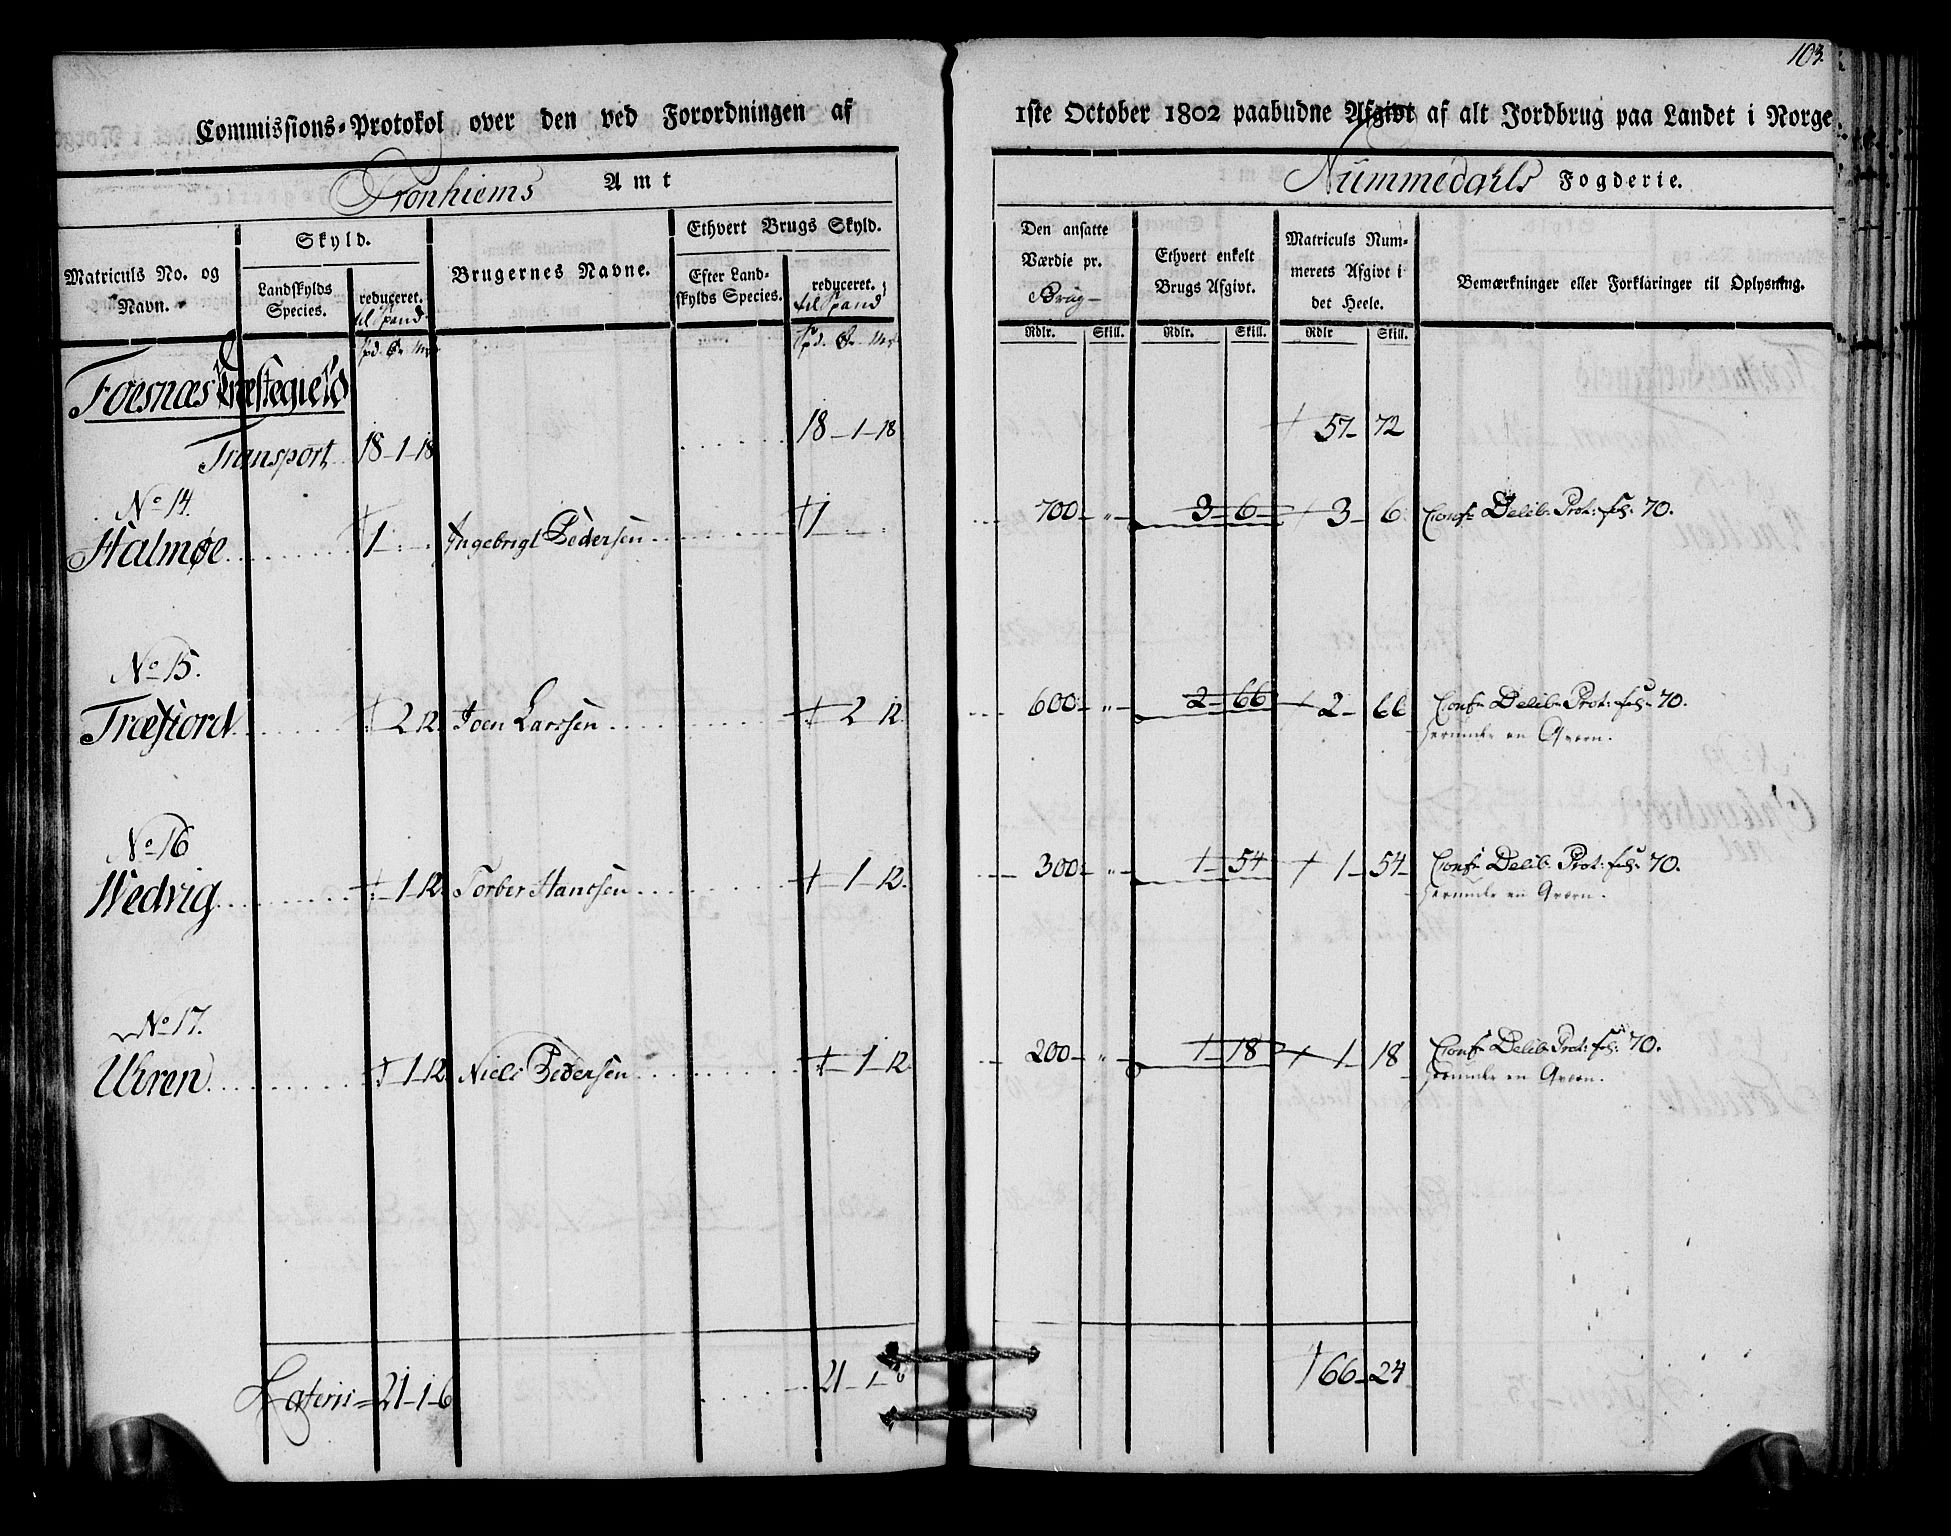 103.
Commissions-Protokol over den ved Forordningen af 1ste October 1802 paabudne Afgivt af alt Jordbrug paa Landet i Norge
Tronhiems Amt
Nummedahls Fogderie.
Matriculs No. og Navn.
Skyld.
Landskylds Species.
reduceret. til Spand
Brugernes Navne.
Ethvert Brugs Skyld.
Efter Landskylds Species.
reduceret. til Spand
Den ansatte Værdie pr. Brug
Ethvert enkelt Brugs Afgivt.
Matriculs Nummerets Afgivt i det Heele.
Bemærkninger eller Forklaringer til Oplysning.
Spd. Ør Mrk
Spd. Ør Mrk
Rdlr. Skill. Rdlr. Skill. Rdlr Skill.
Foesnæs Præstegield
Transport 18-1-18 18-1-18 57-72
No 14.
Halmøe 1 Ingebrigt Pedersen 1 700 3-6 3-6 Conf Delib: Prot: fol: 70.
No 15.
Træfiord 2 12. Joen Larssen 2 12 600 2-66 2-66 Conf Delib: Prot: fol: 70.
herunder en Qværn.
No 16
Wedvig 1-12. Torber Hanssen 1-12. 300 1-54 1-54 Conf Delib: Prot: fol: 70.
herunder en Qværn.
No 17.
Uhren 1-12. Niels Pedersen 1-12. 200 1-18 1-18 Conf Delib: Prot: fol: 70.
herunder en Qværn.
Lateris = 21-1-6 21-1-6 66-24